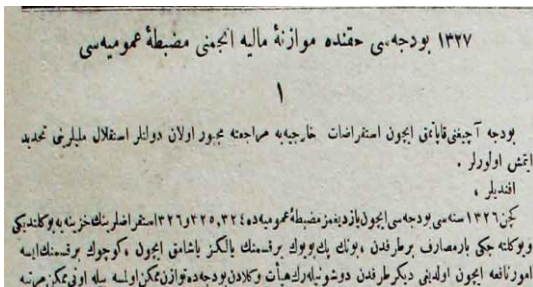 ١٣٢٧ بودجه‌سی حقنده موازنهٔ مالیه انجمنی مضبطهٔ عمومیه‌سی
١
بودجه آچیغنی قاپاتمق ایچون استقراضات خارجیه‌یه مراجعته مجبور اولان دولتلر استقلال ملیلرینی تحدید
ایتمش اولورلر .
افندیلر ،
کچن ١٣٢٦ سنه‌سی بودجه‌سی ایچون یازدیغمز مضبطهٔ عمومیه‌ده ٣٢٤ ، ٣٢٥ و ٣٢٦ استقراضلرینك خزینه‌یه یوکلندیکی
و یوکلته‌جکی بار مصارف بر طرفدن ، بونك پك بویوك بر قسمنك یالکز یاشامق ایچون ، کوچوك بر قسمنك ایسه
امور نافعه ایچون اولدیغی دیکر طرفدن دوشونیله‌رك هیأت وکلادن بودجه‌ده توازن ممکن اولمسه بیله اونی ممکن مرتبه